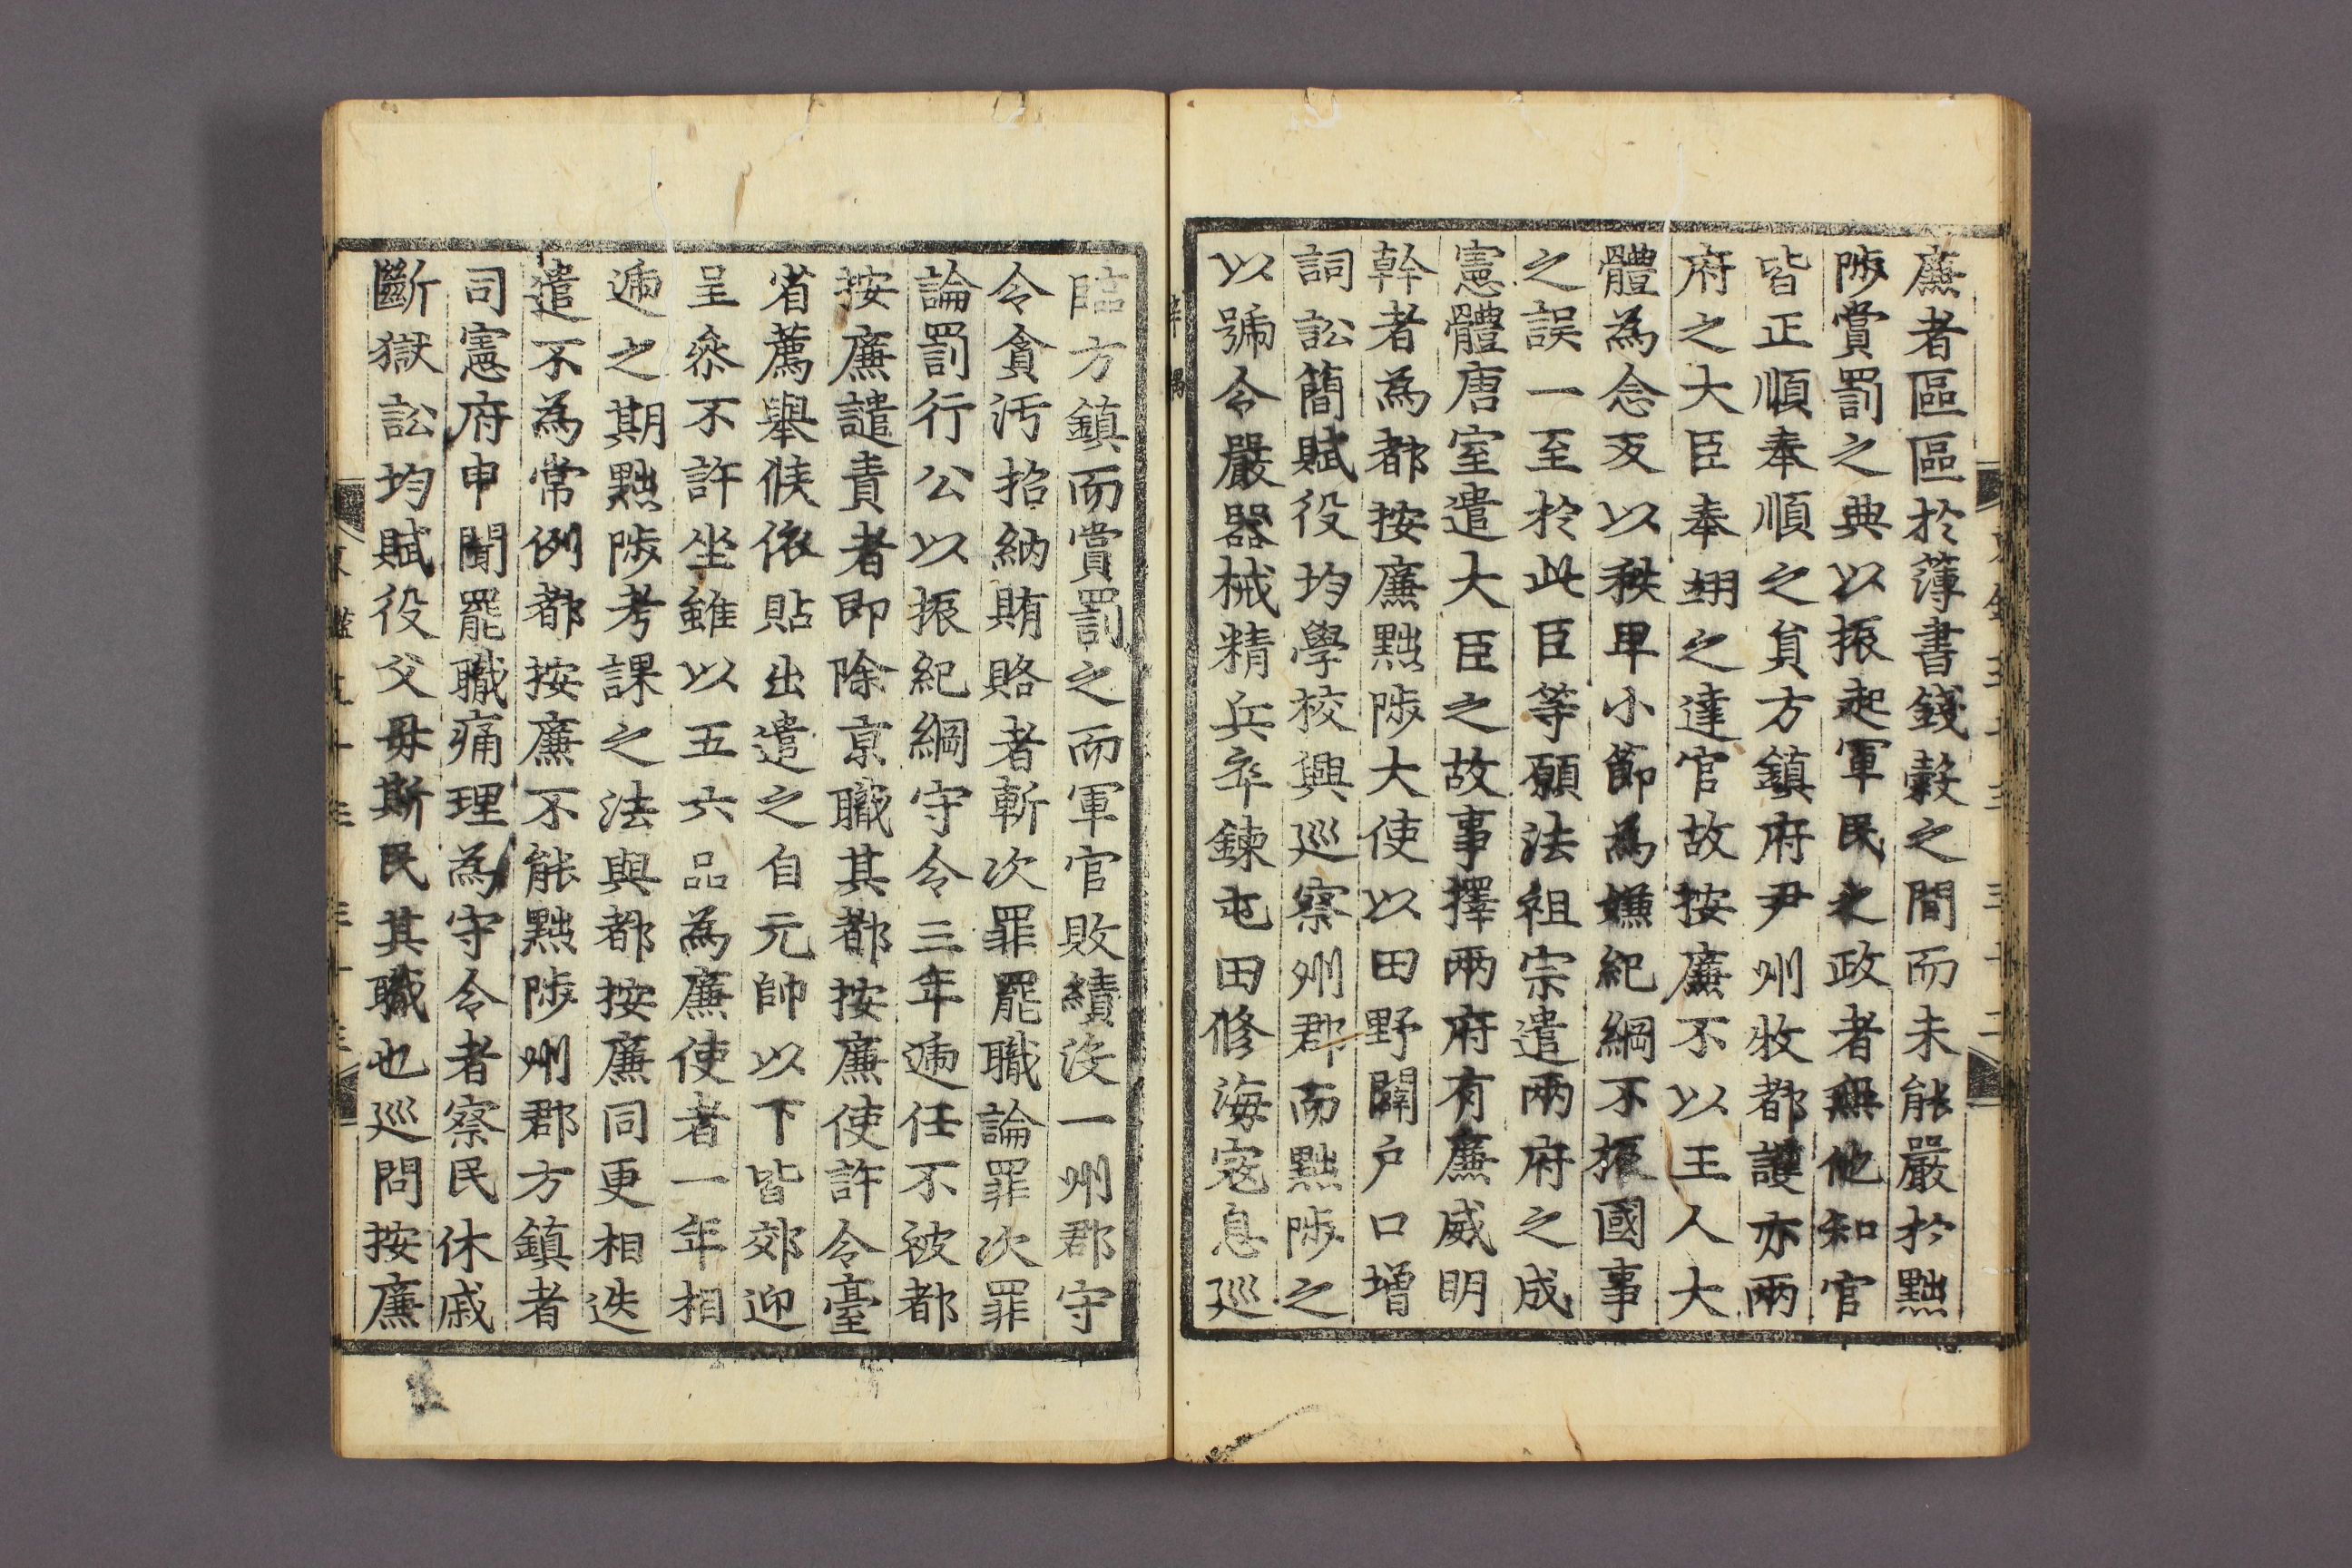 廉者區區於薄書錢糓之間而未能嚴於黜
陟賞罰之典以振起軍民之政者無他知官
皆正順奉順之貟方鎮府尹州牧都護亦兩
府之大臣奉翊之達官故按廉不以王人大
體為念反以秩卑小節為嫌紀綱不振國事
之誤一至於此臣等願法祖宗遣兩府之成
憲體唐室遣大臣之故事擇兩府有廉威明
幹者為都按廉黜陟大使以田野闢户口增
詞訟簡賦役均學校興巡察州郡而黜陟之
以號令嚴器械精兵卒鍊屯田修海寇息廵
臨方鎮而賞罰之而軍官敗績没一州郡守
令貪汚招納賄賂者斬次罪罷職論罪次罪
論罰行公以振紀綱守令三年遞任不被都
按廉譴責者即除京職其都按廉使許令臺
省薦舉候依貼出遣之自元帥以下皆郊迎
呈叅不許坐雖以五六品為廉使者一年相
遞之期黜陟考課之法與都按廉同更相迭
遣不為常例都按廉不能黜陟州郡方鎮者
司憲府申聞罷職痛理為守令者察民休戚
斷獄訟均賦役父母斯民其職也巡問按廉